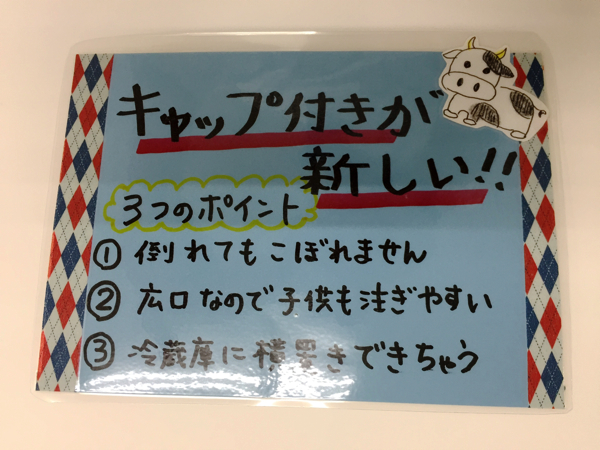 キャップ付きが
新しい!!
3つのポイント
① 倒れてもこぼれません
② 広口なので子供も注ぎやすい
③ 冷蔵庫に横置きできちゃう